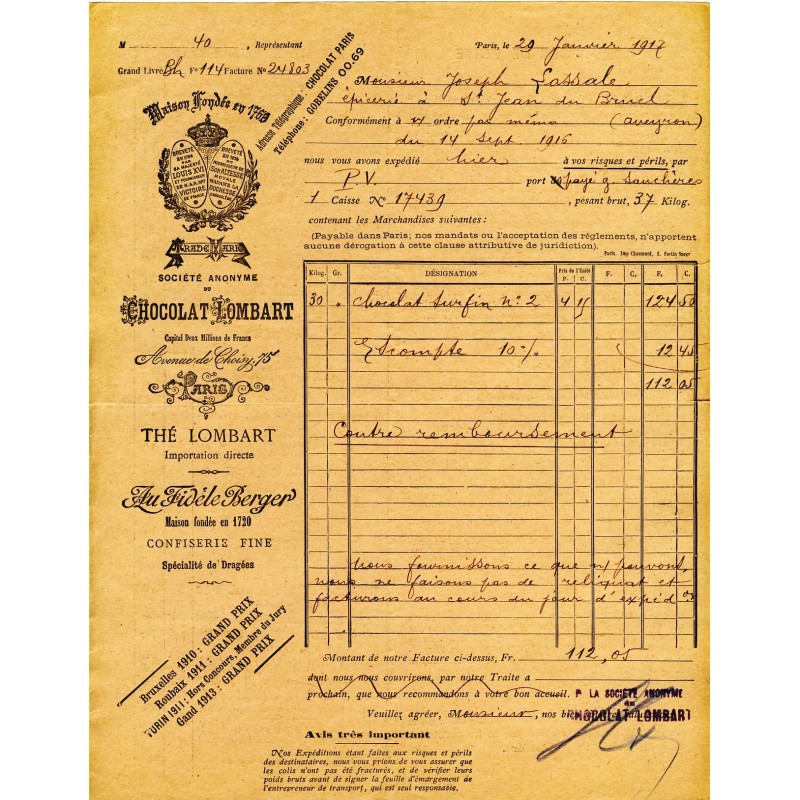 M 40, Représentant
Paris, le 29 Janvier 1917
Grand Livre Bh Fo 114 Facture No 24803
Adresse Télégraphique: CHOCOLAT PARIS
Téléphone: GOBELINS 00.69
Monsieur Joseph Lassale
épicerie à St Jean du Bruel
Conformément à ordre par mémo (Aveyron)
du 14 Sept. 1916
nous vous avons expédié hier à vos risques et périls, par
P.V. port payé g. Sauclières
1 Caisse No 17439, pesant brut, 37 Kilog.
contenant les Marchandises suivantes:
(Payable dans Paris; nos mandats ou l'acceptation des réglements, n'apportent
aucune dérogation à cette clause attributive de juridiction).
Maison Fondée en 1760
BREVETÉ
LOUIS XVI
VICTOIRE
DE FRANCE
BREVETÉ
SON ALTESSE
ROYALE
MADAME LA
DUCHESSE
TRADE MARK
SOCIÉTÉ ANONYME
DU
CHOCOLAT LOMBART
Capital Deux Millions de Francs
Avenue de Choisy, 75
PARIS
THÉ LOMBART
Importation directe
Au Fidèle Berger
Maison fondée en 1720
CONFISERIE FINE
Spécialité de Dragées
Bruxelles 1910: GRAND PRIX
Roubaix 1911: GRAND PRIX
TURIN 1911: Hors Concours, Membre du Jury
Gand 1913: GRAND PRIX
Kilog. Gr. DÉSIGNATION Prix de l'Unité F. C. F. C. F. C.
30 " Chocolat surfin no 2 4 15 124 50
Escompte 10 % 12 45
112 05
Contre remboursement
Nous fournissons ce que n/ pouvons,
nous ne faisons pas de reliquat et
facturons au cours du jour d'expédon
Montant de notre Facture ci-dessus, Fr. 112,05
dont nous nous couvrirons, par notre Traite a
prochain, que nous recommandons à votre bon accueil.
Veuillez agréer, Monsieur, nos
P LA SOCIÉTÉ ANONYME
du
CHOCOLAT LOMBART
Avis très important
Nos Expéditions étant faites aux risques et périls
des destinataires, nous vous prions de vous assurer
que les colis n'ont pas été fracturés, et de vérifier leurs
poids bruts avant de signer la feuille d'émargement de
l'entrepreneur de transport, qui est seul responsable.